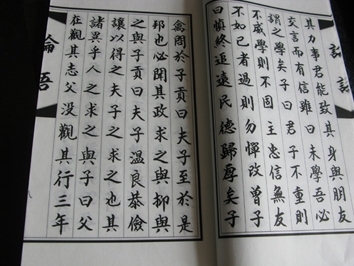 論語
其力事君能致其身與朋友
交言而有信雖曰未學吾必
謂之學矣子曰君子不重則
不威學則不固主忠信無友
不如己者過則勿憚改曾子
曰慎終追遠民德歸厚矣子
禽問於子貢曰夫子至於是
邦也必聞其政求之與抑與
之與子貢曰夫子溫良恭儉
讓以得之夫子之求之也其
諸異乎人之求之與子曰父
在觀其志父沒觀其行三年
論語